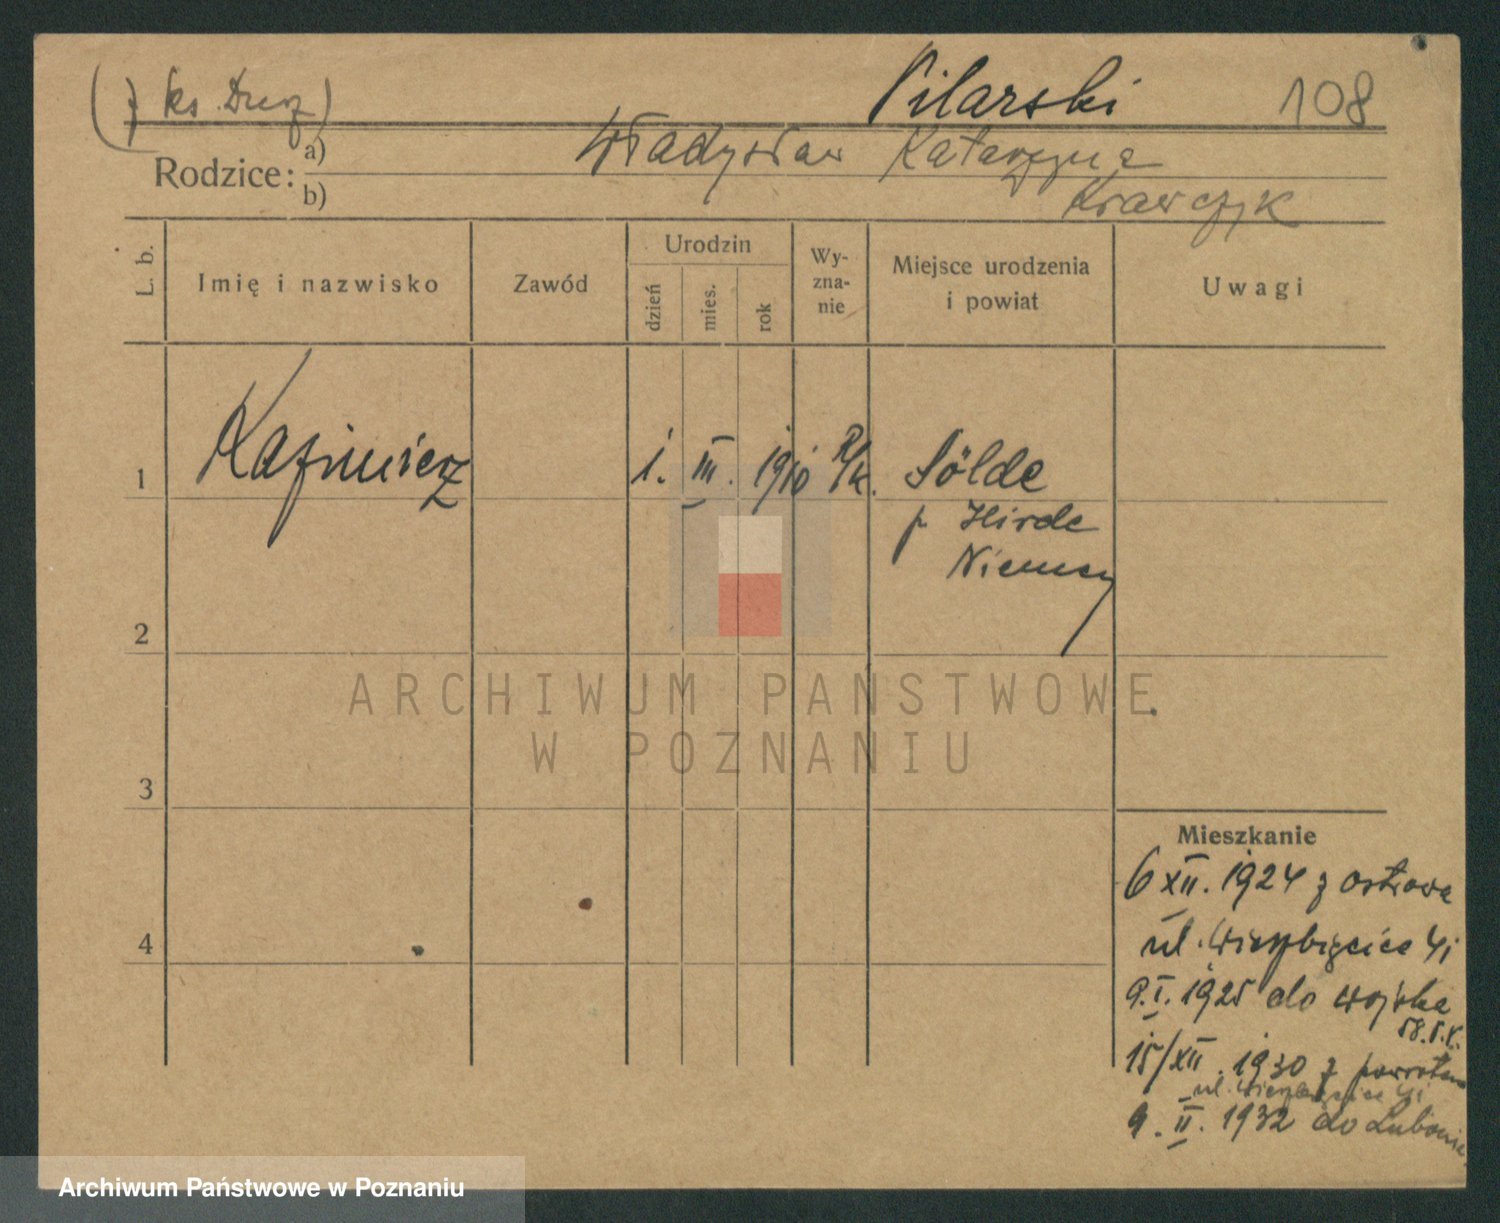 Pilarski 108
Rodzice: a) Władysław Katarzyna
b) Krawczyk
L. b.
Imię i nazwisko
Zawód
Urodzin
dzień
mies.
rok
Wy-
zna-
nie
Miejsce urodzenia
i powiat
Uwagi
1 Kazimierz 1. III. 1910 R/k. Sölde
p Hirde
Niemcy
2
3
4
Mieszkanie
6 XII. 1924 z Ostrowa
ul. Wierzbięcice 41
9. I. 1925 do wojska
58. P.
15/XII. 1930 z powrotem
ul. Wierzbięcice 41
9. II. 1932 do
ARCHIWUM PAŃSTWOWE
W POZNANIU
Archiwum Państwowe w Poznaniu